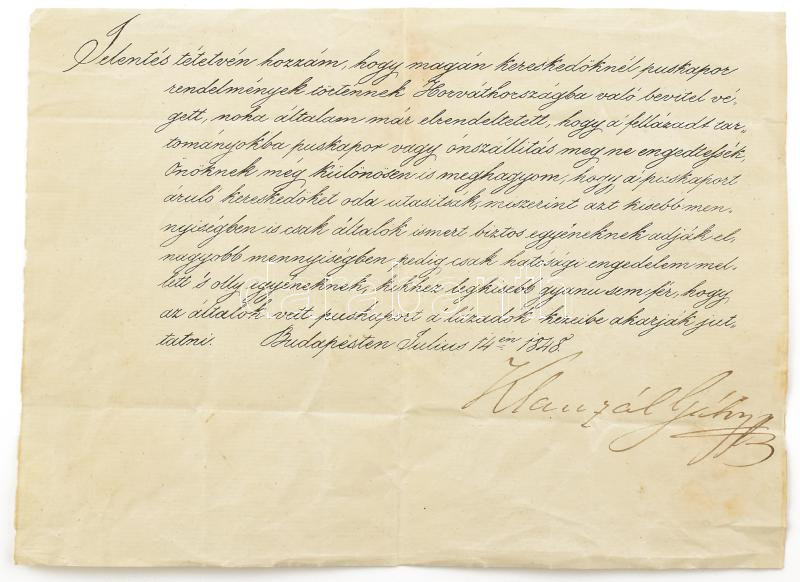 Jelentés tétetvén hozzám, hogy magán kereskedőknél puskapor
rendelmények történnek Horváthországba való bevitel vé-
gett, noha általam már elrendeltetett, hogy a' fellázadt tar-
tományokba puskapor vagy ónszállitás meg ne engedtessék,
Önöknek még különösen is meghagyom, hogy a' puskaport
áruló kereskedőket oda utasitsák, miszerint azt kisebb men-
nyiségben is csak általok ismert biztos egyéneknek adják el,
nagyobb mennyiségben pedig csak hatósági engedelem mel-
lett 's olly egyéneknek, kikhez legkisebb gyanu sem fér, hogy
az általok vett puskaport a' lázadók kezeibe akarják jut-
tatni. Budapesten Julius 14én 1848.
Klauzál Gábor
darabanth